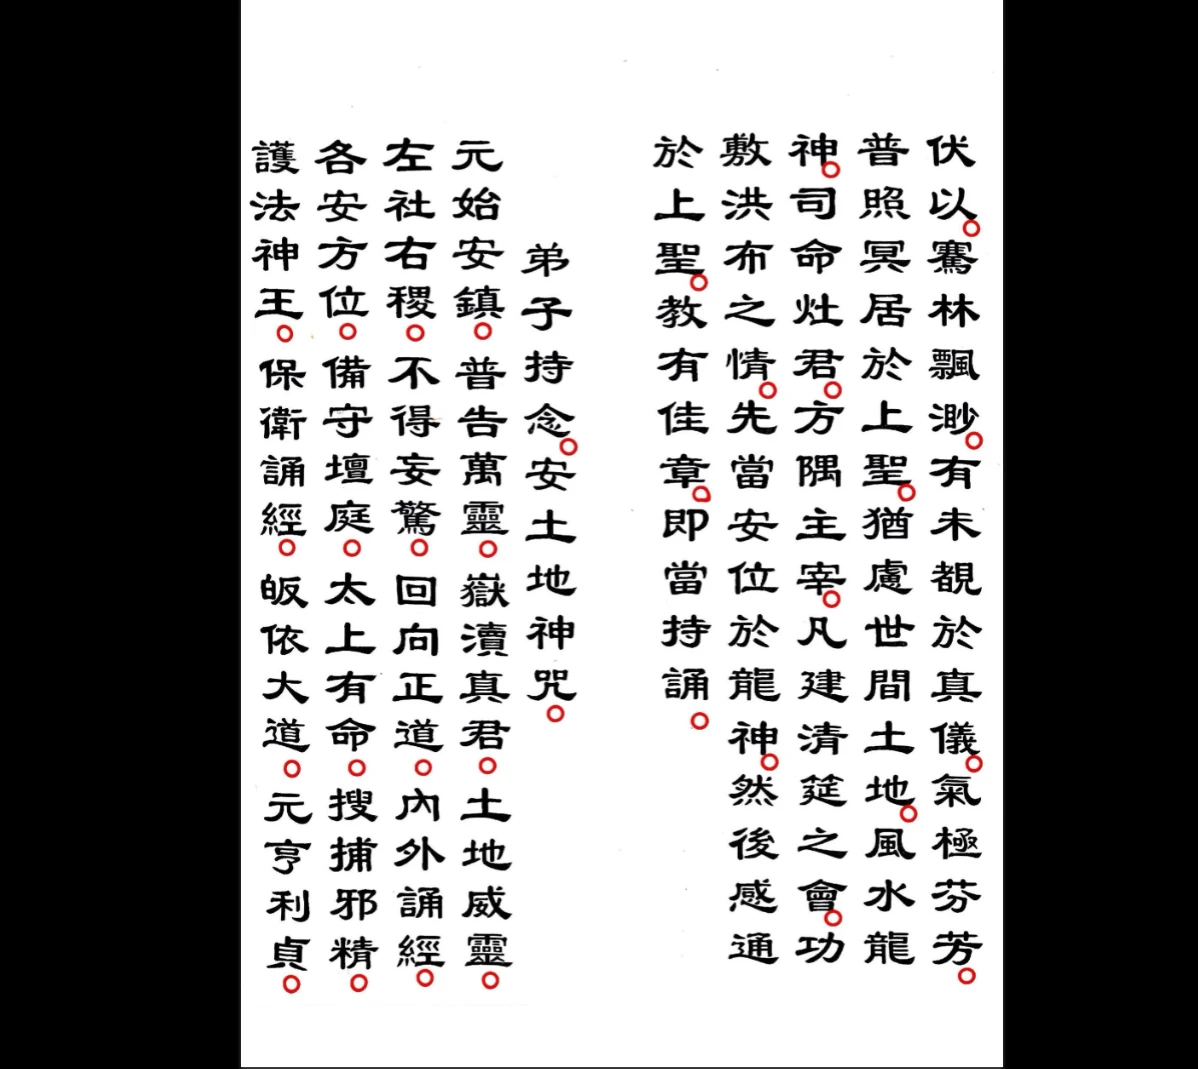 伏以。騫林飄渺。有未覩於真儀。氣極芬芳。
普照冥居於上聖。猶慮世間土地。風水龍
神。司命灶君。方隅主宰。凡建清筵之會。功
敷洪布之情。先當安位於龍神。然後感通
於上聖。教有佳章。即當持誦。
弟子持念。安土地神咒。
元始安鎮。普告萬靈。嶽瀆真君。土地威靈。
左社右稷。不得妄驚。回向正道。內外誦經。
各安方位。備守壇庭。太上有命。搜捕邪精。
護法神王。保衛誦經。皈依大道。元亨利貞。